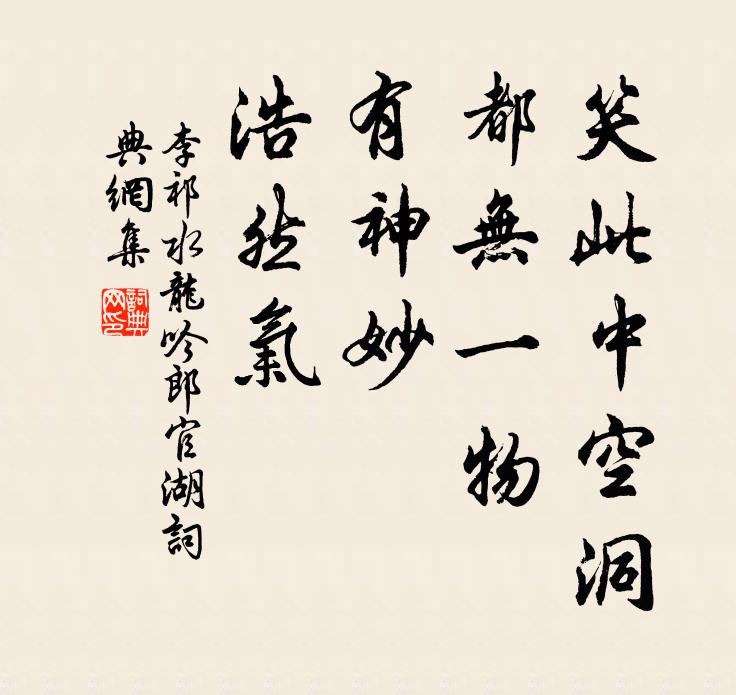 笑此中空洞
都無一物
有神妙
浩然氣
李祁水龍吟郎官湖詞
典網集
詞典網印